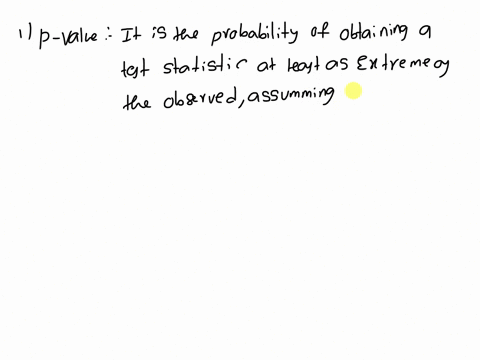 1) p-value :- It is the probability of obtaining a
test statistic at least as Extreme as
the observed, assumming